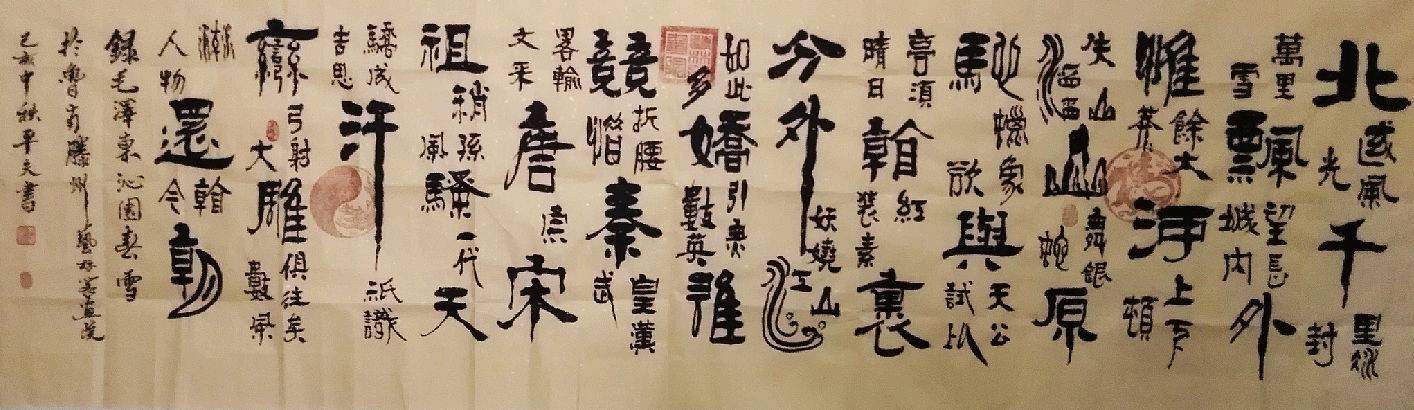 北國風光千里冰封
萬里雪飄望長城內外
惟餘莽莽大河上下頓
失滔滔山舞銀蛇原
馳蠟象欲與天公試比
高須晴日看紅裝素裹
分外妖嬈江山
如此多嬌引無數英雄
競折腰惜秦皇漢武
略輸文采唐宗宋
祖稍孫風騷一代天
驕成吉思汗祇識
彎弓射大雕俱往矣數
風流人物還看今朝
錄毛澤東沁園春雪
於魯南滕州藝林書畫院
己亥中秋平夫書